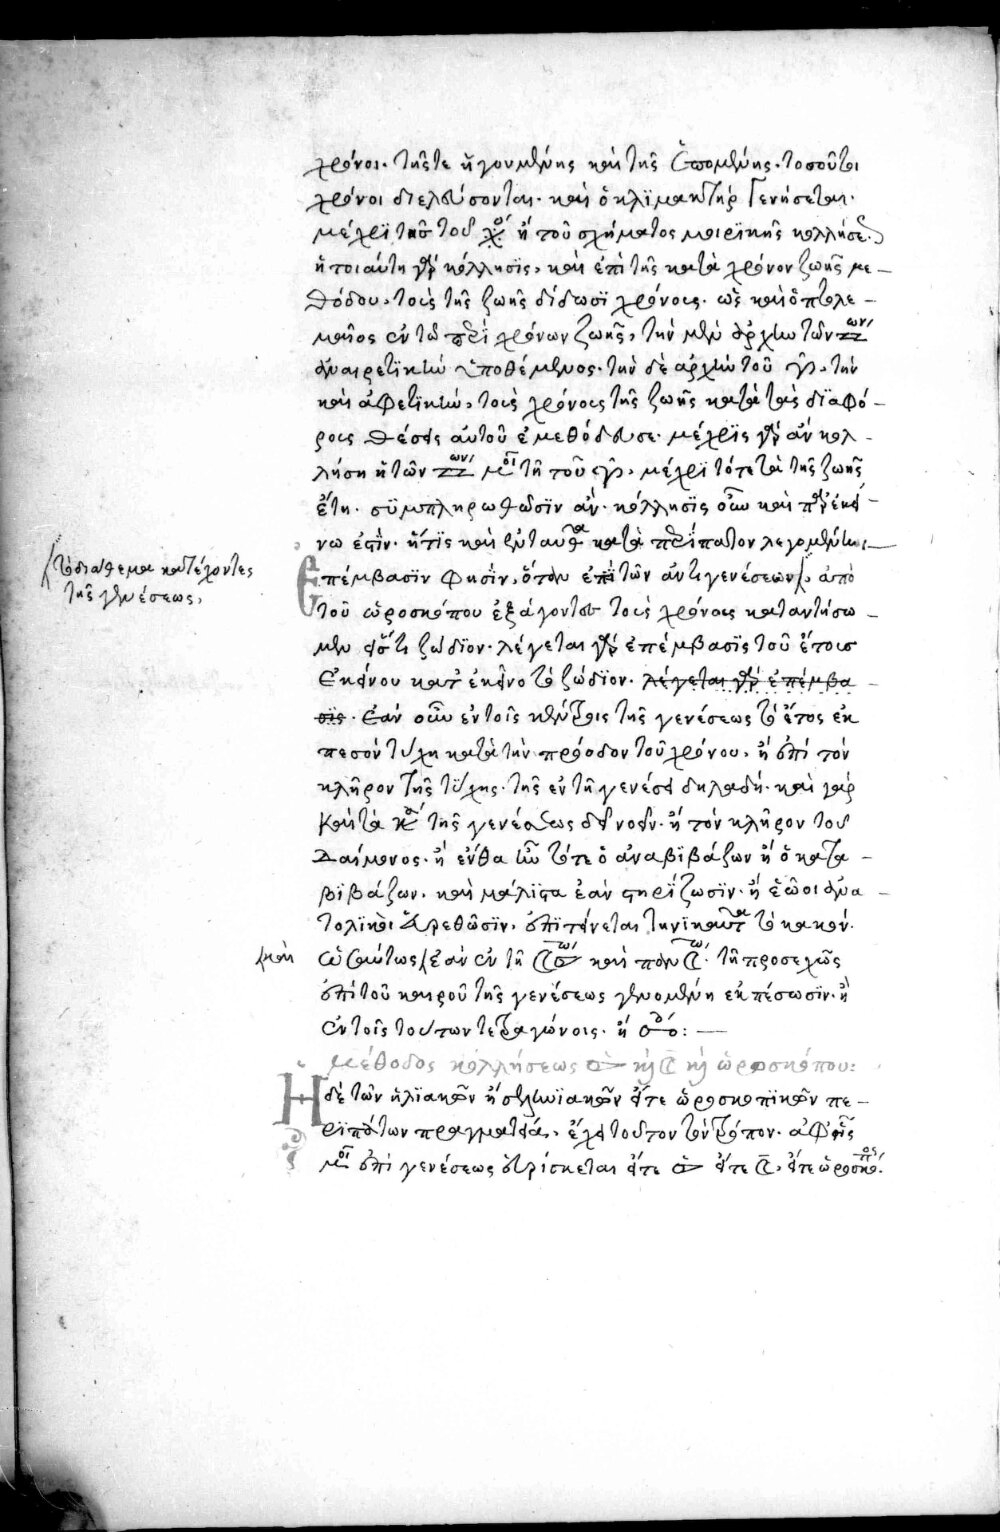 χρόνοι. τῆς τε ἡγουμένης καὶ τῆς ἑπομένης. τοσοῦτοι
χρόνοι διελεύσονται. καὶ ὁ κλϊμακτὴρ γενήσεται.
μέχρϊ τῆς τοῦ ἢ τοῦ σχήματος μοιρϊκῆς κολλήσε(ως)
ἡ τοιαύτη γὰρ κόλλησϊς, καὶ ἐπὶ τῆς κατὰ χρόνον ζωῆς με-
θόδου, τοὺς τῆς ζωῆς δίδωσϊ χρόνους. ὡς καὶ ὁ πτολε-
μαῖος ἐν τῶ περὶ χρόνων ζωῆς, τὴν μὲν ἀρχὴν τῶν
ἀναιρετϊκὴν ὑποθέμενος. τὴν δὲ ἀρχὴν τοῦ, τὴν
καὶ ἀφετϊκὴν, τοὺς χρόνους τῆς ζωῆς κατὰ τὰς δϊαφό-
ρους θέσεις αὐτοῦ ἐμεθόδευσε. μέχρϊς γὰρ ἂν κολ-
λήση ἡ τῶν μοῖ τῆ τοῦ, μέχρϊ τότε τὰ τῆς ζωῆς
ἔτη. συμπληρωθῶσϊν ἄν. κόλλησϊς οὖν καὶ παρ' ἐκεί-
νω ἐστὶν. ἥτϊς καὶ ἐνταῦθα κατὰ περίπατον λεγομένη
Ἐπέμβασϊν φησὶν, ὅταν ἐπὶ τῶν ἀντιγενέσεων, ἀπὸ
(τὸ διάθεμα κατέχοντες
τῆς γενέσεως,
τοῦ ὡροσκόπου ἐξάγοντες τοὺς χρόνους καταντήσω
μεν εἴς τι ζώδϊον. λέγεται γὰρ ἐπέμβασϊς τοῦ ἔτους
ἐκείνου κατ' ἐκεῖνο τὸ ζώδϊον. λέγεται γὰρ ἐπέμβα-
σϊς. ἐὰν οὖν ἐν τοῖς κέντροις τῆς γενέσεως τὸ ἔτος ἐκ
πεσὸν τύχη κατὰ τὴν πρόοδον τοῦ χρόνου, ἢ ἐπὶ τὸν
κλῆρον τῆς τύχης. τῆς ἐν τῆ γενέσει δηλαδή. καὶ γὰρ
καὶ τὰ τῆς γενέσεως δεῖ νοεῖν. ἢ τὸν κλῆρον τοῦ
δαίμονος. ἢ ἔνθα ἦν τότε ὁ ἀναβϊβάζων ἢ ὁ κατα-
βϊβάζων. καὶ μάλϊστα ἐὰν στηρϊζωσϊν. ἢ ἑῶοι ἀνα-
τολϊκοὶ εὑρεθῶσϊν, ἐπϊτείνεται τηνϊκαῦτα τὸ κακόν.
(καὶ
ὡσαύτως (ἐὰν ἐν τῆ καὶ παν. τῆ προσεχῶς
ἐπὶ τοῦ καιροῦ τῆς γενέσεως γενομένη ἐκπέσωσϊν. ἢ
ἐν τοῖς τούτων τετραγώνοις. ἢ:
μέθοδος κολλήσεως ☉ κ(αὶ) ☾ κ(αὶ) ὡροσκόπου:
Ἡ δὲ τῶν ἡλϊακῶν ἢ σεληνϊακῶν εἴτε ὡροσκοπϊκῶν πε-
ρϊπάτων πραγματεία, ἔχει τοῦτον τὸν τρόπον. ἀφ' ἧς
μοῖ ἐπὶ γενέσεως εὑρίσκεται εἴτε ☉ εἴτε ☾, εἴτε ὡροσκόπος.